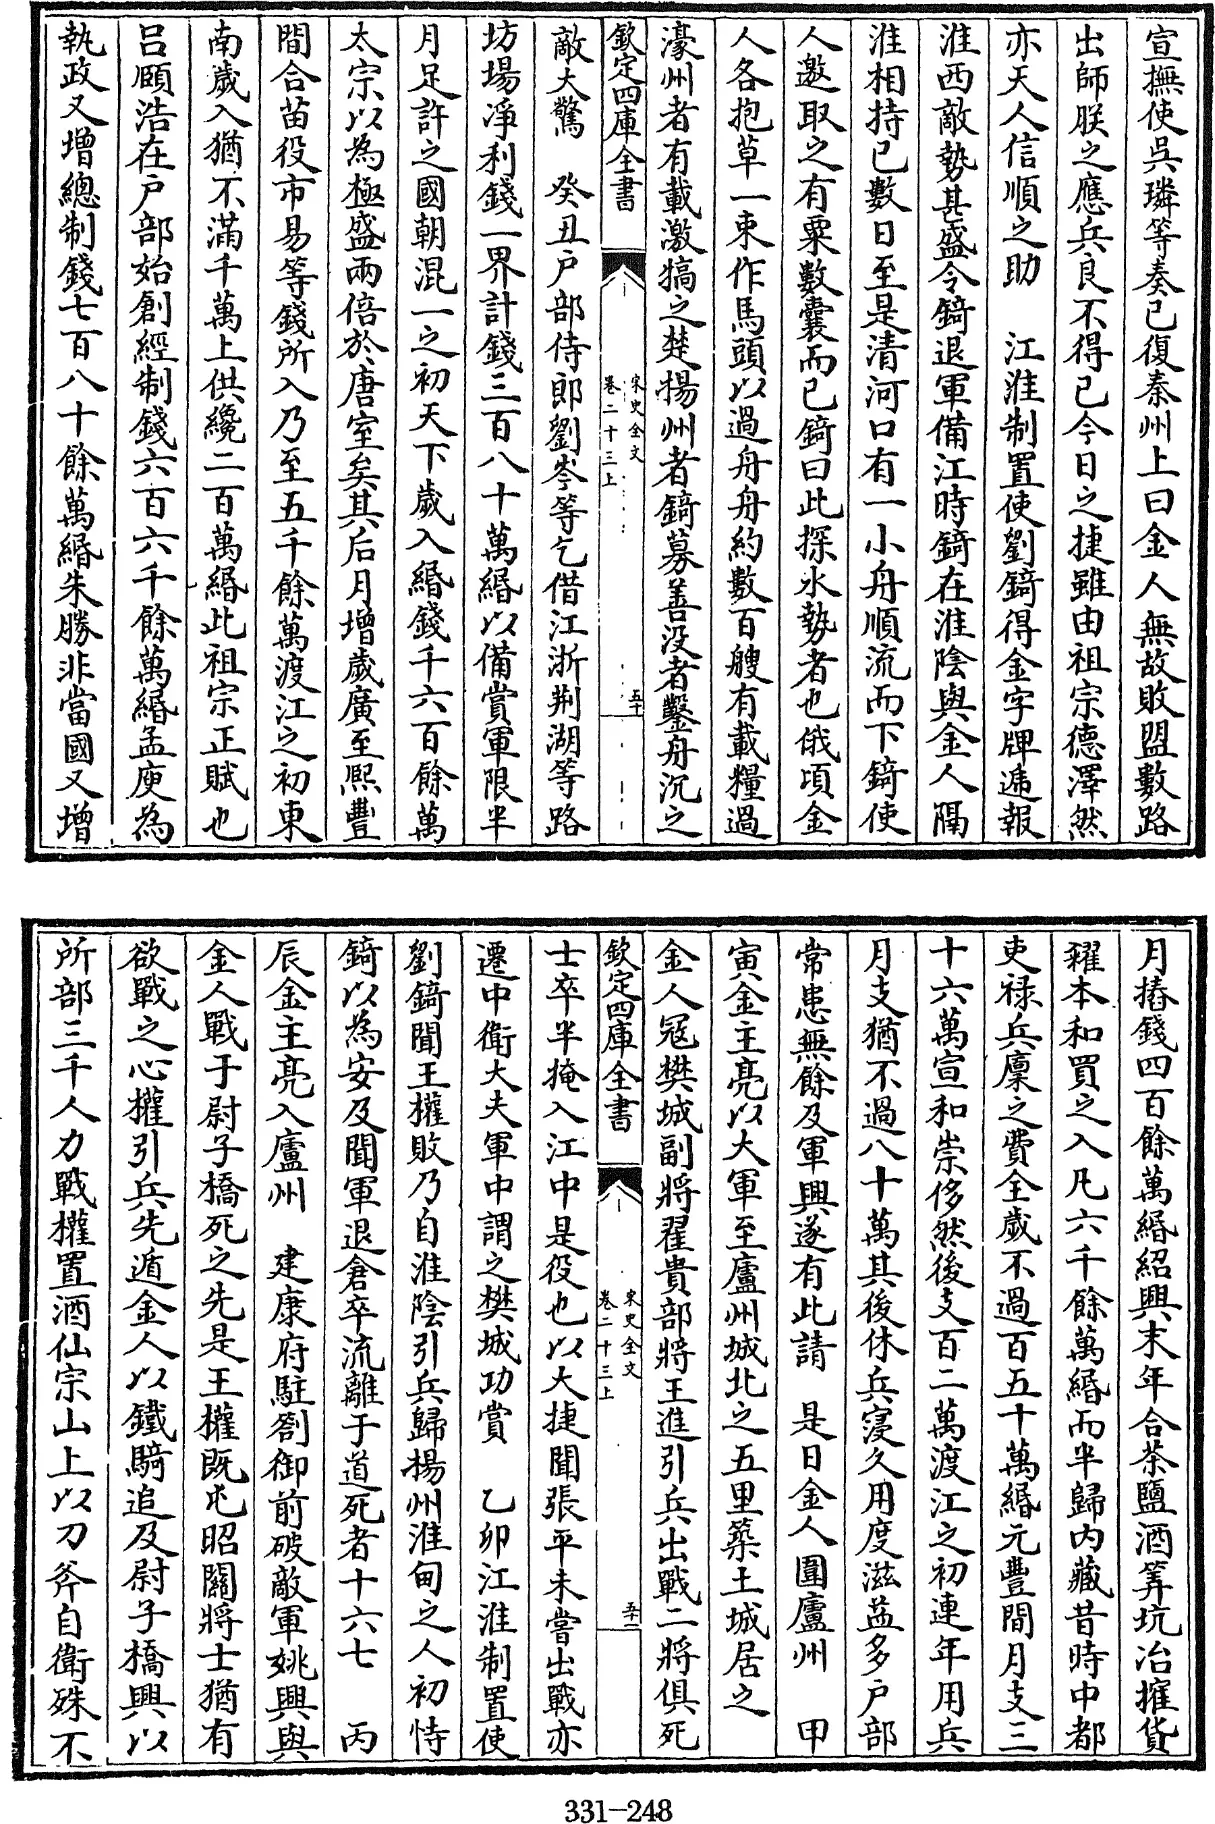 宣撫使吳璘等奏已復秦州上曰金人無故敗盟數路
出師朕之應兵良不得已今日之捷雖由祖宗德澤然
亦天人信順之助　江淮制置使劉錡得金字牌遞報
淮西敵勢甚盛令錡退軍備江時錡在淮陰與金人隔
淮相持已數日至是清河口有一小舟順流而下錡使
人邀取之有粟數囊而已錡曰此探水勢者也俄頃金
人各抱草一束作馬頭以過舟舟約數百艘有載糧過
濠州者有載激犒之楚揚州者錡募善沒者鑿舟沉之
欽定四庫全書
宋史全文
卷二十三上
五十
敵大驚　癸丑戶部侍郎劉岑等乞借江浙荆湖等路
坊場淨利錢一界計錢三百八十萬緡以備賞軍限半
月足許之國朝混一之初天下歲入緡錢千六百餘萬
太宗以為極盛兩倍於唐室矣其后月增歲廣至熙豐
間合苗役市易等錢所入乃至五千餘萬渡江之初東
南歲入猶不滿千萬上供纔二百萬緡此祖宗正賦也
呂頤浩在戶部始創經制錢六百六千餘萬緡孟庾為
執政又增總制錢七百八十餘萬緡朱勝非當國又增
月摏錢四百餘萬緡紹興末年合茶鹽酒筭坑冶搉貨
糴本和買之入凡六千餘萬緡而半歸内藏昔時中都
吏禄兵廩之費全歲不過百五十萬緡元豐間月支三
十六萬宣和崇侈然後支百二萬渡江之初連年用兵
月支猶不過八十萬其後休兵寖久用度滋益多戶部
常患無餘及軍興遂有此請　是日金人圍廬州　甲
寅金主亮以大軍至廬州城北之五里築土城居之
金人冦樊城副將翟貴部將王進引兵出戰二將俱死
欽定四庫全書
宋史全文
卷二十三上
五十一
士卒半掩入江中是役也以大捷聞張平未嘗出戰亦
遷中衛大夫軍中謂之樊城功賞　乙卯江淮制置使
劉錡聞王權敗乃自淮陰引兵歸揚州淮甸之人初恃
錡以為安及聞軍退倉卒流離于道死者十六七　丙
辰金主亮入廬州　建康府駐劄御前破敵軍姚興與
金人戰于尉子橋死之先是王權既屯昭關將士猶有
欲戰之心權引兵先遁金人以鐵騎追及尉子橋興以
所部三千人力戰權置酒仙宗山上以刀斧自衛殊不
331-248